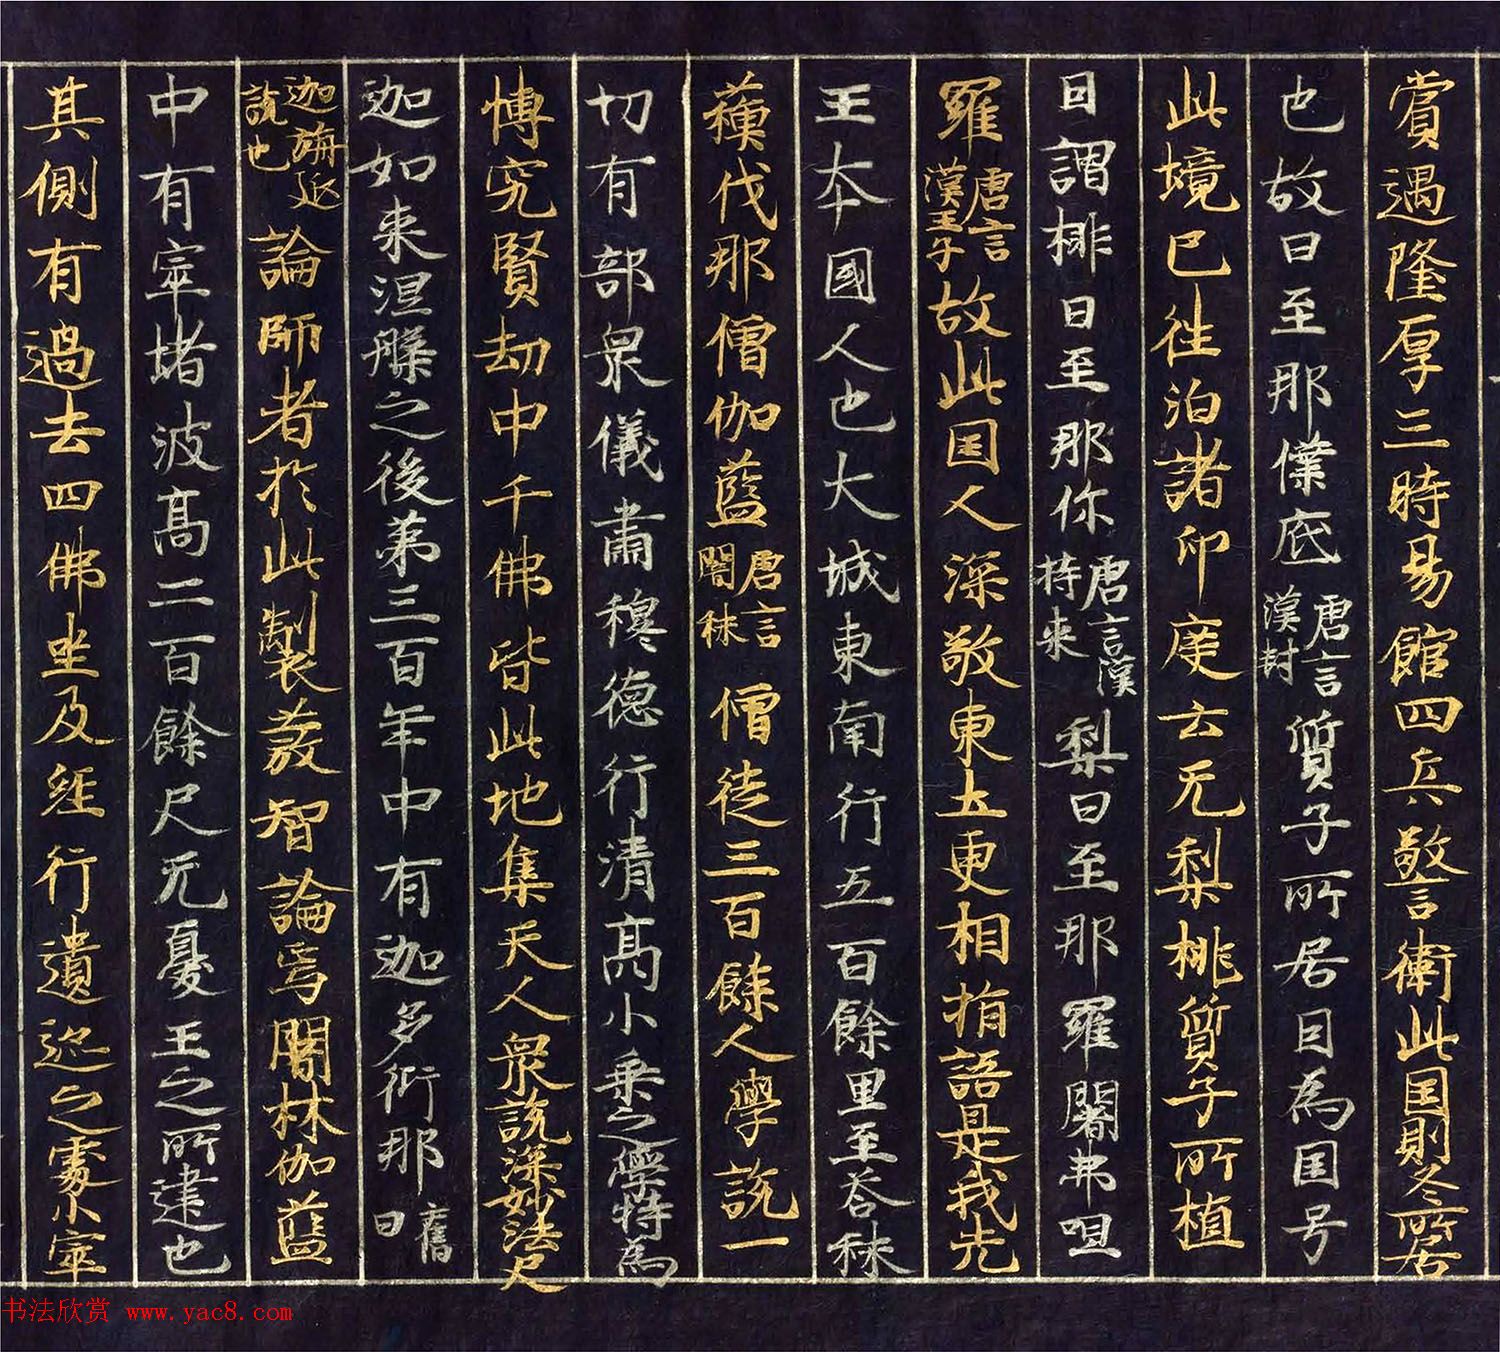 賞遇隆厚三時易館四兵警衛此国則冬所居
也故曰至那僕底唐言漢封質子所居因為国号
此境已往洎諸印度云无梨桃質子所植
因謂桃曰至那你唐言漢持來梨曰至那羅闍弗呾
羅唐言漢王子故此国人深敬東土更相指語是我先
王本國人也大城東南行五百餘里至荅秣
蘓伐那僧伽藍唐言闇林僧徒三百餘人學說一
切有部衆儀肅穆德行清高小乗之學特為
博究賢劫中千佛皆此地集天人衆說深妙法尺
迦如来涅槃之後第三百年中有迦多衍那舊曰
迦旃延說也論師者於此製發智論焉闇林伽藍
中有窣堵波高二百餘尺无憂王之所建也
其側有過去四佛坐及經行遺迹之處小窣
书法欣赏 www.yac8.com